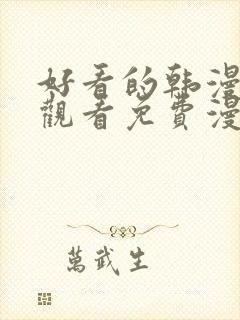 好看的韩漫
觀看免費漫
萬武生